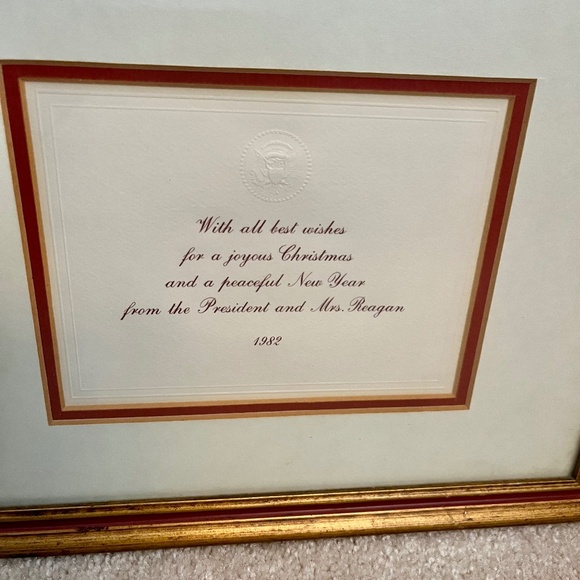 With all best wishes
for a joyous Christmas
and a peaceful New Year
from the President and Mrs. Reagan
1982